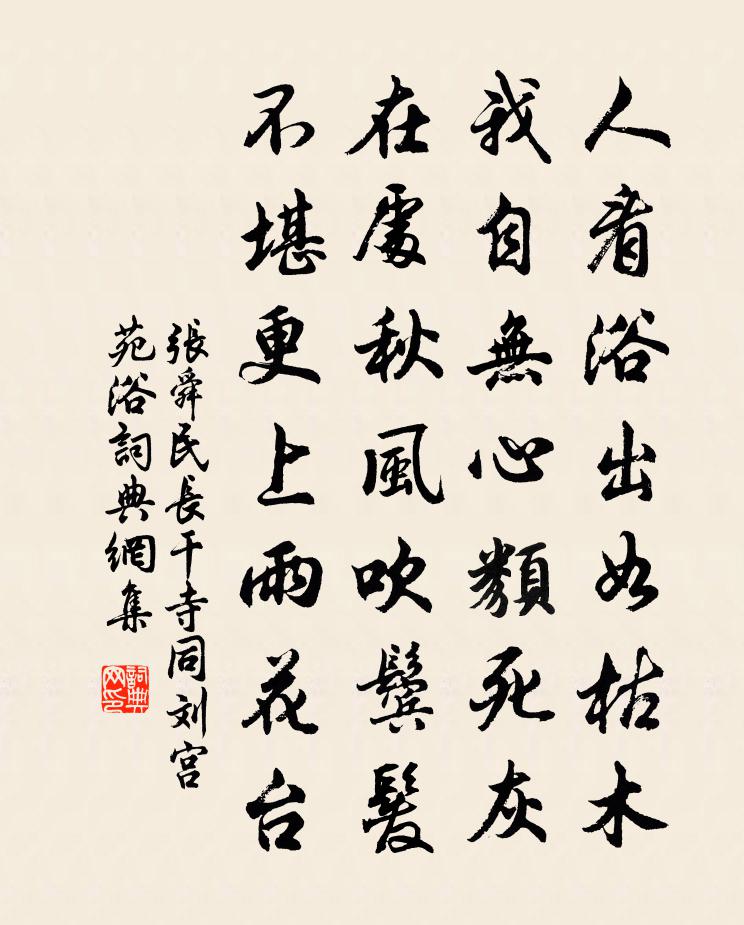 人看浴出如枯木
我自無心類死灰
在處秋風吹鬓髮
不堪更上雨花台
張舜民長干寺同刘宫
苑浴詞典網集
詞典
网印